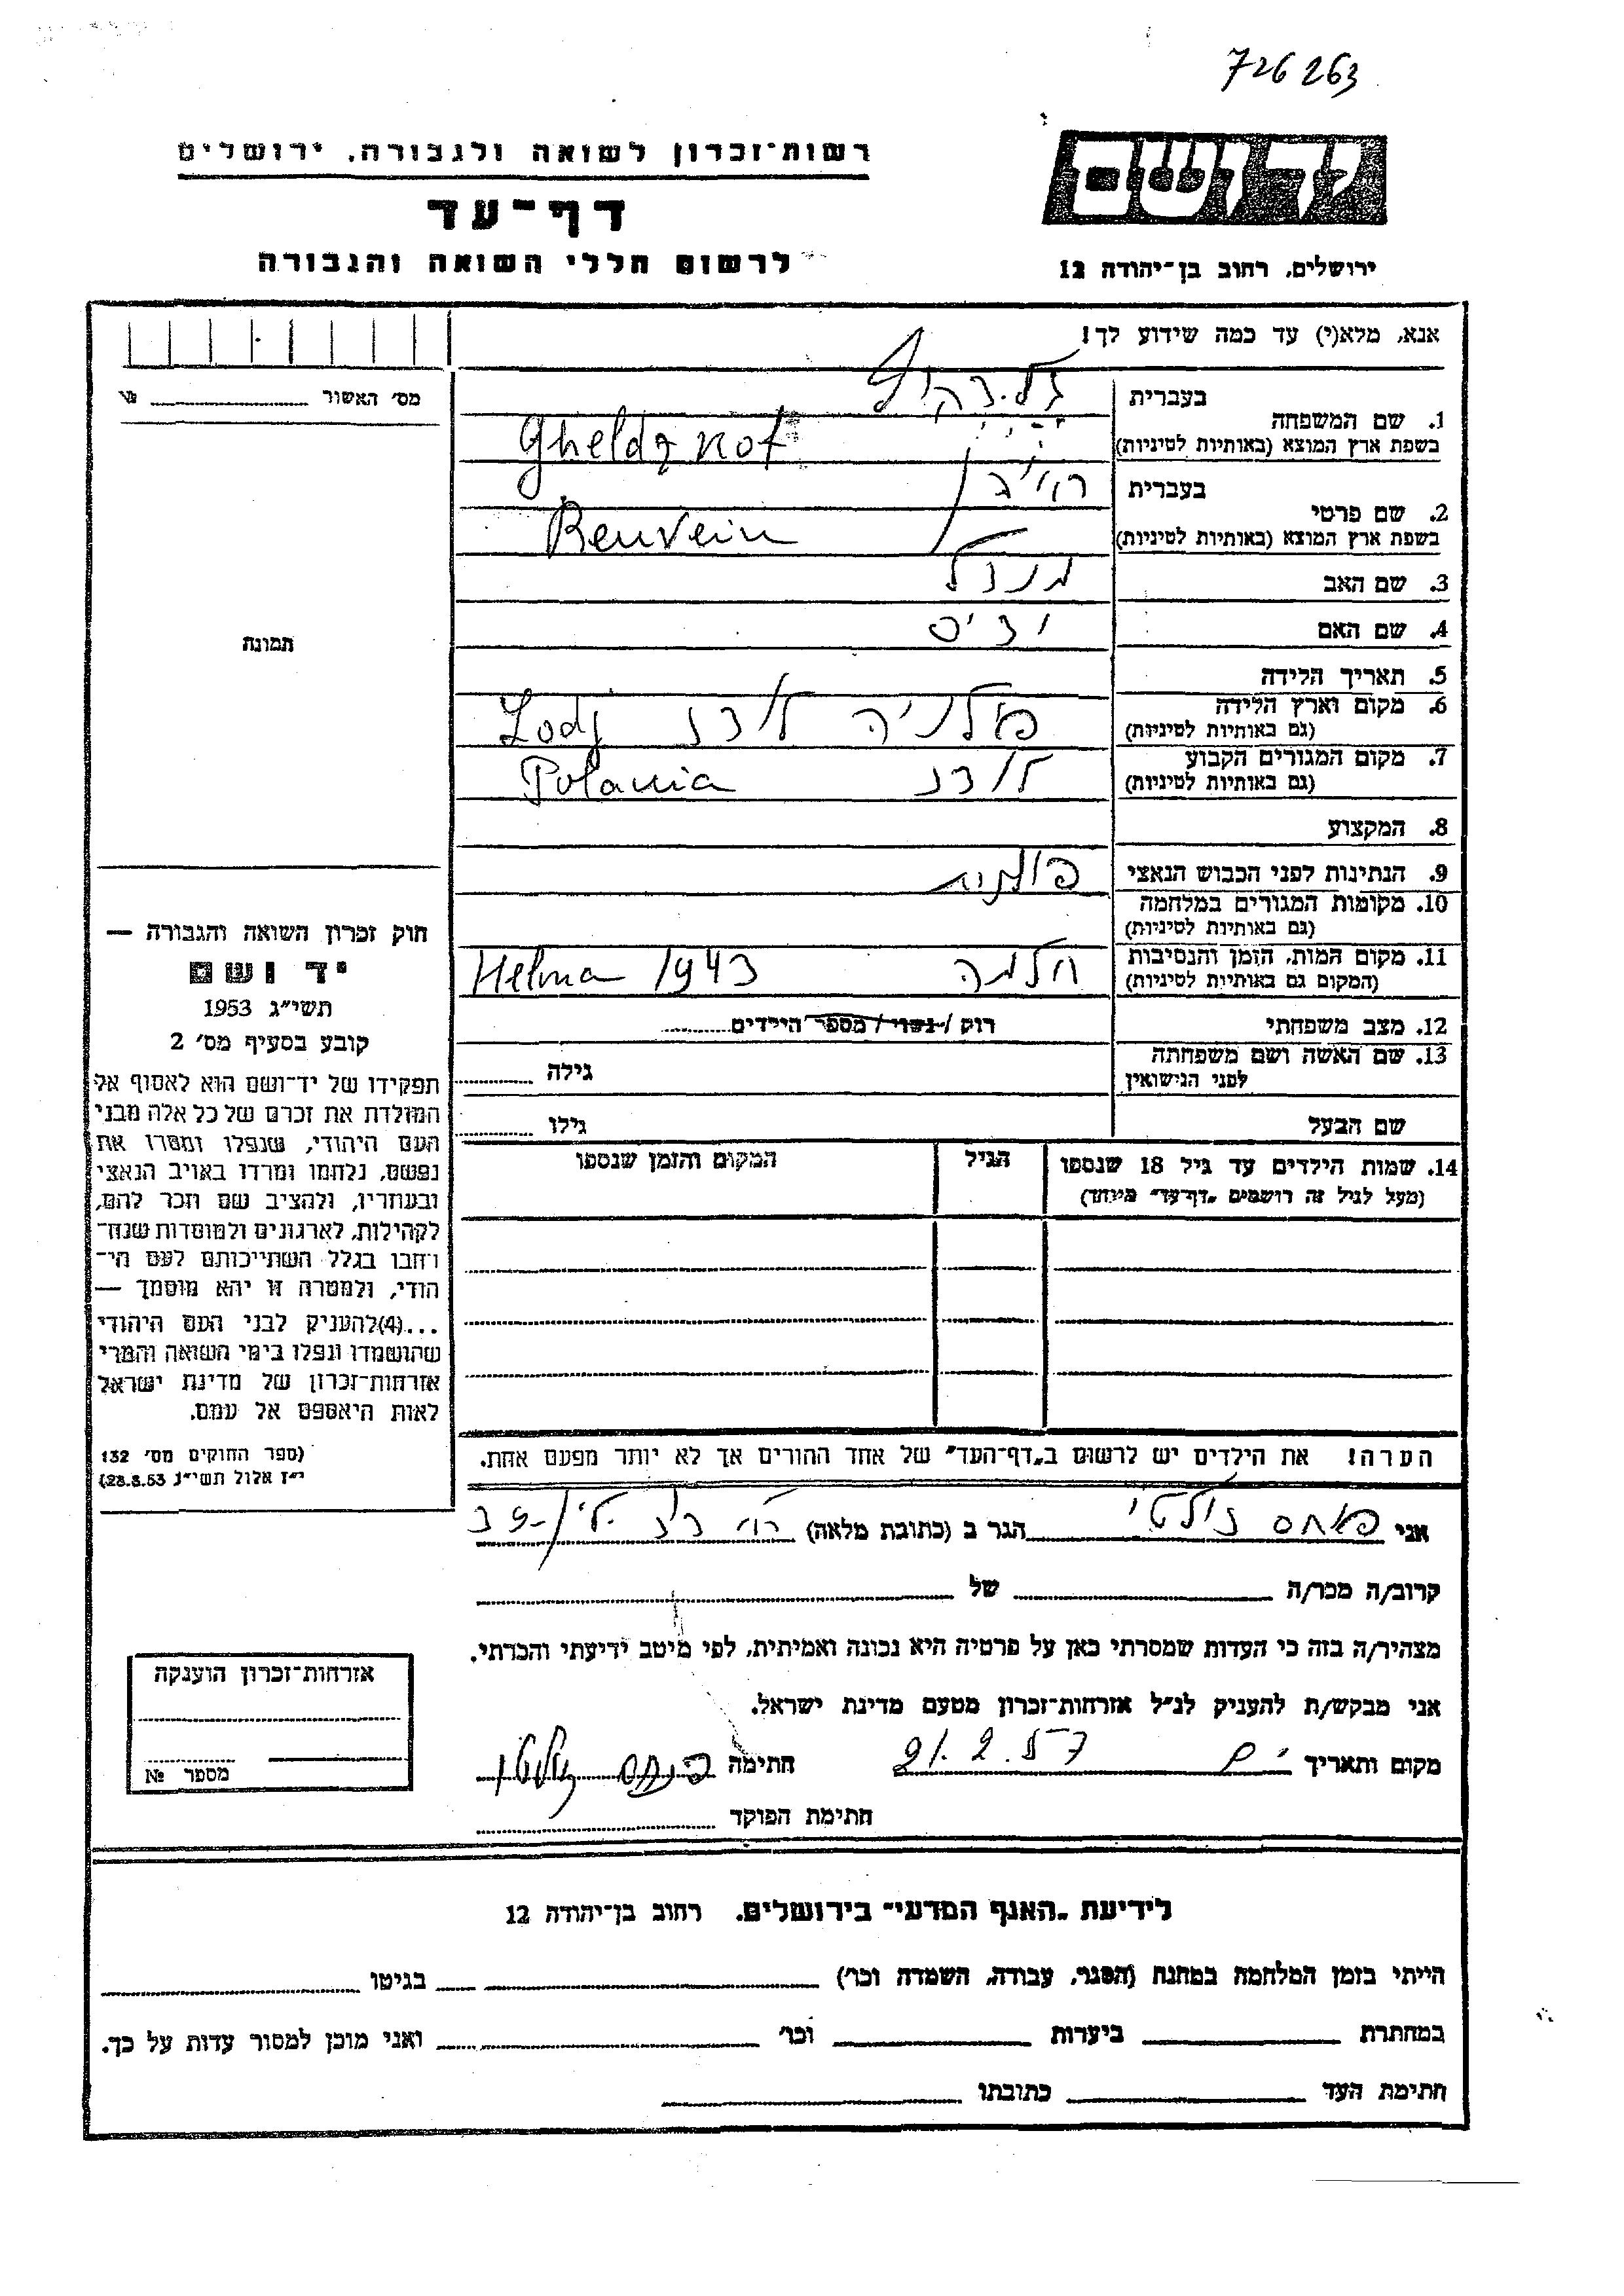 726263
ידושם
רשות־זכרון לשואה ולגבורה, ירושלים
דף־עד
לרשום חללי השואה והגבורה
ירושלים, רחוב בן־יהודה 12
אנא, מלא(י) עד כמה שידוע לך!
מס׳ האשור №
בעברית
1. שם המשפחה
בשפת ארץ המוצא (באותיות לטיניות) Gheldznot
בעברית
2. שם פרטי
בשפת ארץ המוצא (באותיות לטיניות) Reuvein
3. שם האב מנדל
4. שם האם
5. תאריך הלידה
6. מקום וארץ הלידה
(גם באותיות לטיניות) פולניה לודז Lodj
7. מקום המגורים הקבוע
(גם באותיות לטיניות) לודז Polania
8. המקצוע
9. הנתינות לפני הכבוש הנאצי פולנית
10. מקומות המגורים במלחמה
(גם באותיות לטיניות)
11. מקום המות, הזמן והנסיבות
(המקום גם באותיות לטיניות) חלמה Helma 1943
12. מצב משפחתי רוק / נשוי / מספר הילדים
13. שם האשה ושם משפחתה
לפני הנישואין גילה
שם הבעל גילו
14. שמות הילדים עד גיל 18 שנספו הגיל המקום והזמן שנספו
(מעל לגיל זה רושמים „דף־עד״ מיוחד)
הערה! את הילדים יש לרשום ב„דף־העד״ של אחד ההורים אך לא יותר מפעם אחת.
תמונה
חוק זכרון השואה והגבורה —
יד ושם
תשי״ג 1953
קובע בסעיף מס׳ 2
תפקידו של יד־ושם הוא לאסוף אל
המולדת את זכרם של כל אלה מבני
העם היהודי, שנפלו ומסרו את
נפשם, נלחמו ומרדו באויב הנאצי
ובעוזריו, ולהציב שם וזכר להם,
לקהילות, לארגונים ולמוסדות שנח־
רחבו בגלל השתייכותם לעם הי־
הודי, ולמטרה זו יהא מוסמך —
...(4)להעניק לבני העם היהודי
שהושמדו ונפלו בימי השואה והמרי
אזרחות־זכרון של מדינת ישראל
לאות היאספם אל עמם.
(ספר החוקים מס׳ 132
י״ז אלול תשי״ג 28.8.53)
אני הגר ב (כתובת מלאה)
קרוב/ה מכר/ה של
מצהיר/ה בזה כי העדות שמסרתי כאן על פרטיה היא נכונה ואמיתית, לפי מיטב ידיעתי והכרתי.
אני מבקש/ת להעניק לנ״ל אזרחות־זכרון מטעם מדינת ישראל.
מקום ותאריך 21.2.57 חתימה
חתימת הפוקד
אזרחות־זכרון הוענקה
מספר №
לידיעת „האגף המדעי״ בירושלים, רחוב בן־יהודה 12
הייתי בזמן המלחמה במחנה (הסגר, עבודה, השמדה וכו׳) בגיטו
במחתרת ביערות וכו׳ ואני מוכן למסור עדות על כך.
חתימת העד כתובתו